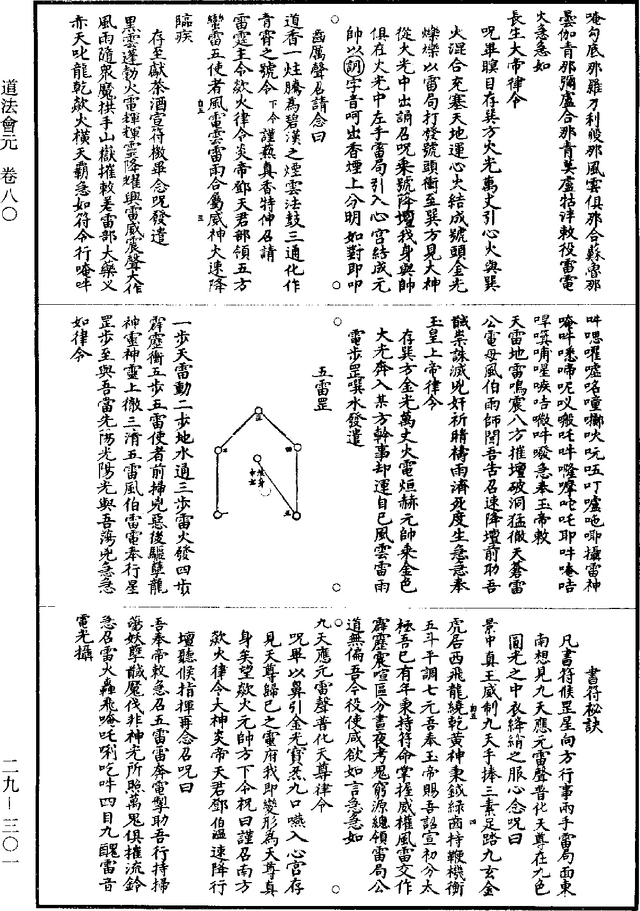 唵勾底那羅刀利皈那風雲俱那合蘇魯那
曇伽青那彌盧合那青荑盧牯泮敕役雷電
火急急如
長生大帝律令
呪畢瞑目存巽方火光萬丈引心火與巽
火混合充塞天地運心火結成號頭金光
爍爍以雷局打發號頭衝至巽方見大神
從火光中出誦召呪乘號降壇我身與帥
俱在火光中左手雷局引入心宮結成元
帥以訶字音呵出香煙上分明如對即叩
齒厲聲召請念曰
道香一炷騰為碧漢之煙雲法鼓三通化作
青霄之號令下令謹爇真香特伸召請
雷霆主令欻火律令炎帝鄧天君部領五方
蠻雷五使者風電雲雷雨合屬威神火速降
臨疾
存至獻茶酒宣符檄畢念呪發遣
黑雲蓬勃火電輝輝雲降耀興雷威震聲大作
風雨隨眾魔拱手山嶽摧敕差雷部大藥叉
赤天叱龍乾欻火橫天霸急如符令行唵吽
吽思囉嘘咯噇啷吠叮嚧吔唧攝雷神
唵吽啼呢吒吽吒吒耶吽唵咭
咭吽急奉玉帝敕
天雷地雷鳴震八方摧壇破洞猛徹天蒼雷
公電母風伯雨師聞吾吿召速降壇前助吾
馘祟誅滅兇奸祈晴禱雨濟死度生急急奉
玉皇上帝律令
存巽方金光萬丈火電烜赫元帥乘金色
火光奔入某方幹事却運自己風雲雷雨
電步罡噀水發遣
五雷罡
一步天雷動二步地水通三步雷火發四步
霹靂衝五步五雷使者前掃兇惡後驅孽龍
神靈神靈上徹三清五雷風伯雷電奉行星
罡步至與吾當先陽光陽光與吾蕩兇急急
如律令
書符祕訣
凡書符候罡星向方行事兩手雷局面東
南想見九天應元雷聲普化天尊在九色
圓光之中衣絳綃之服心念呪曰
景中真王威制九天手捧三素足路九玄金
虎居西飛龍繞乾黃神秉鉞綠齒持鞭機衡
五斗平調七元吾奉玉帝賜吾詔宣初分太
極吾已有年秉持符命掌握威權風雷交作
霹靂震喧區分晝夜考鬼窮源總領雷局公
道無偏吾今役使咸欲如言急急如
九天應元雷聲普化天尊律令
呪畢以鼻引金光寶炁九口嚥入心宮存
見天尊歸巳之雷府我即變形為天尊真
身矣望欻火元帥方下令祝曰謹召南方
欻火律令大神炎帝天君鄧伯溫速降行
壇聽候指揮再念召呪曰
吾奉帝敕急召五雷雷奔電掣助吾行持掃
蕩妖孽馘魔伐非神光所照萬鬼俱摧流鈴
急召雷火轟飛唵吒唎吃吽四目九醜雷音
電光攝
道法會元　卷八〇
二九－三〇一